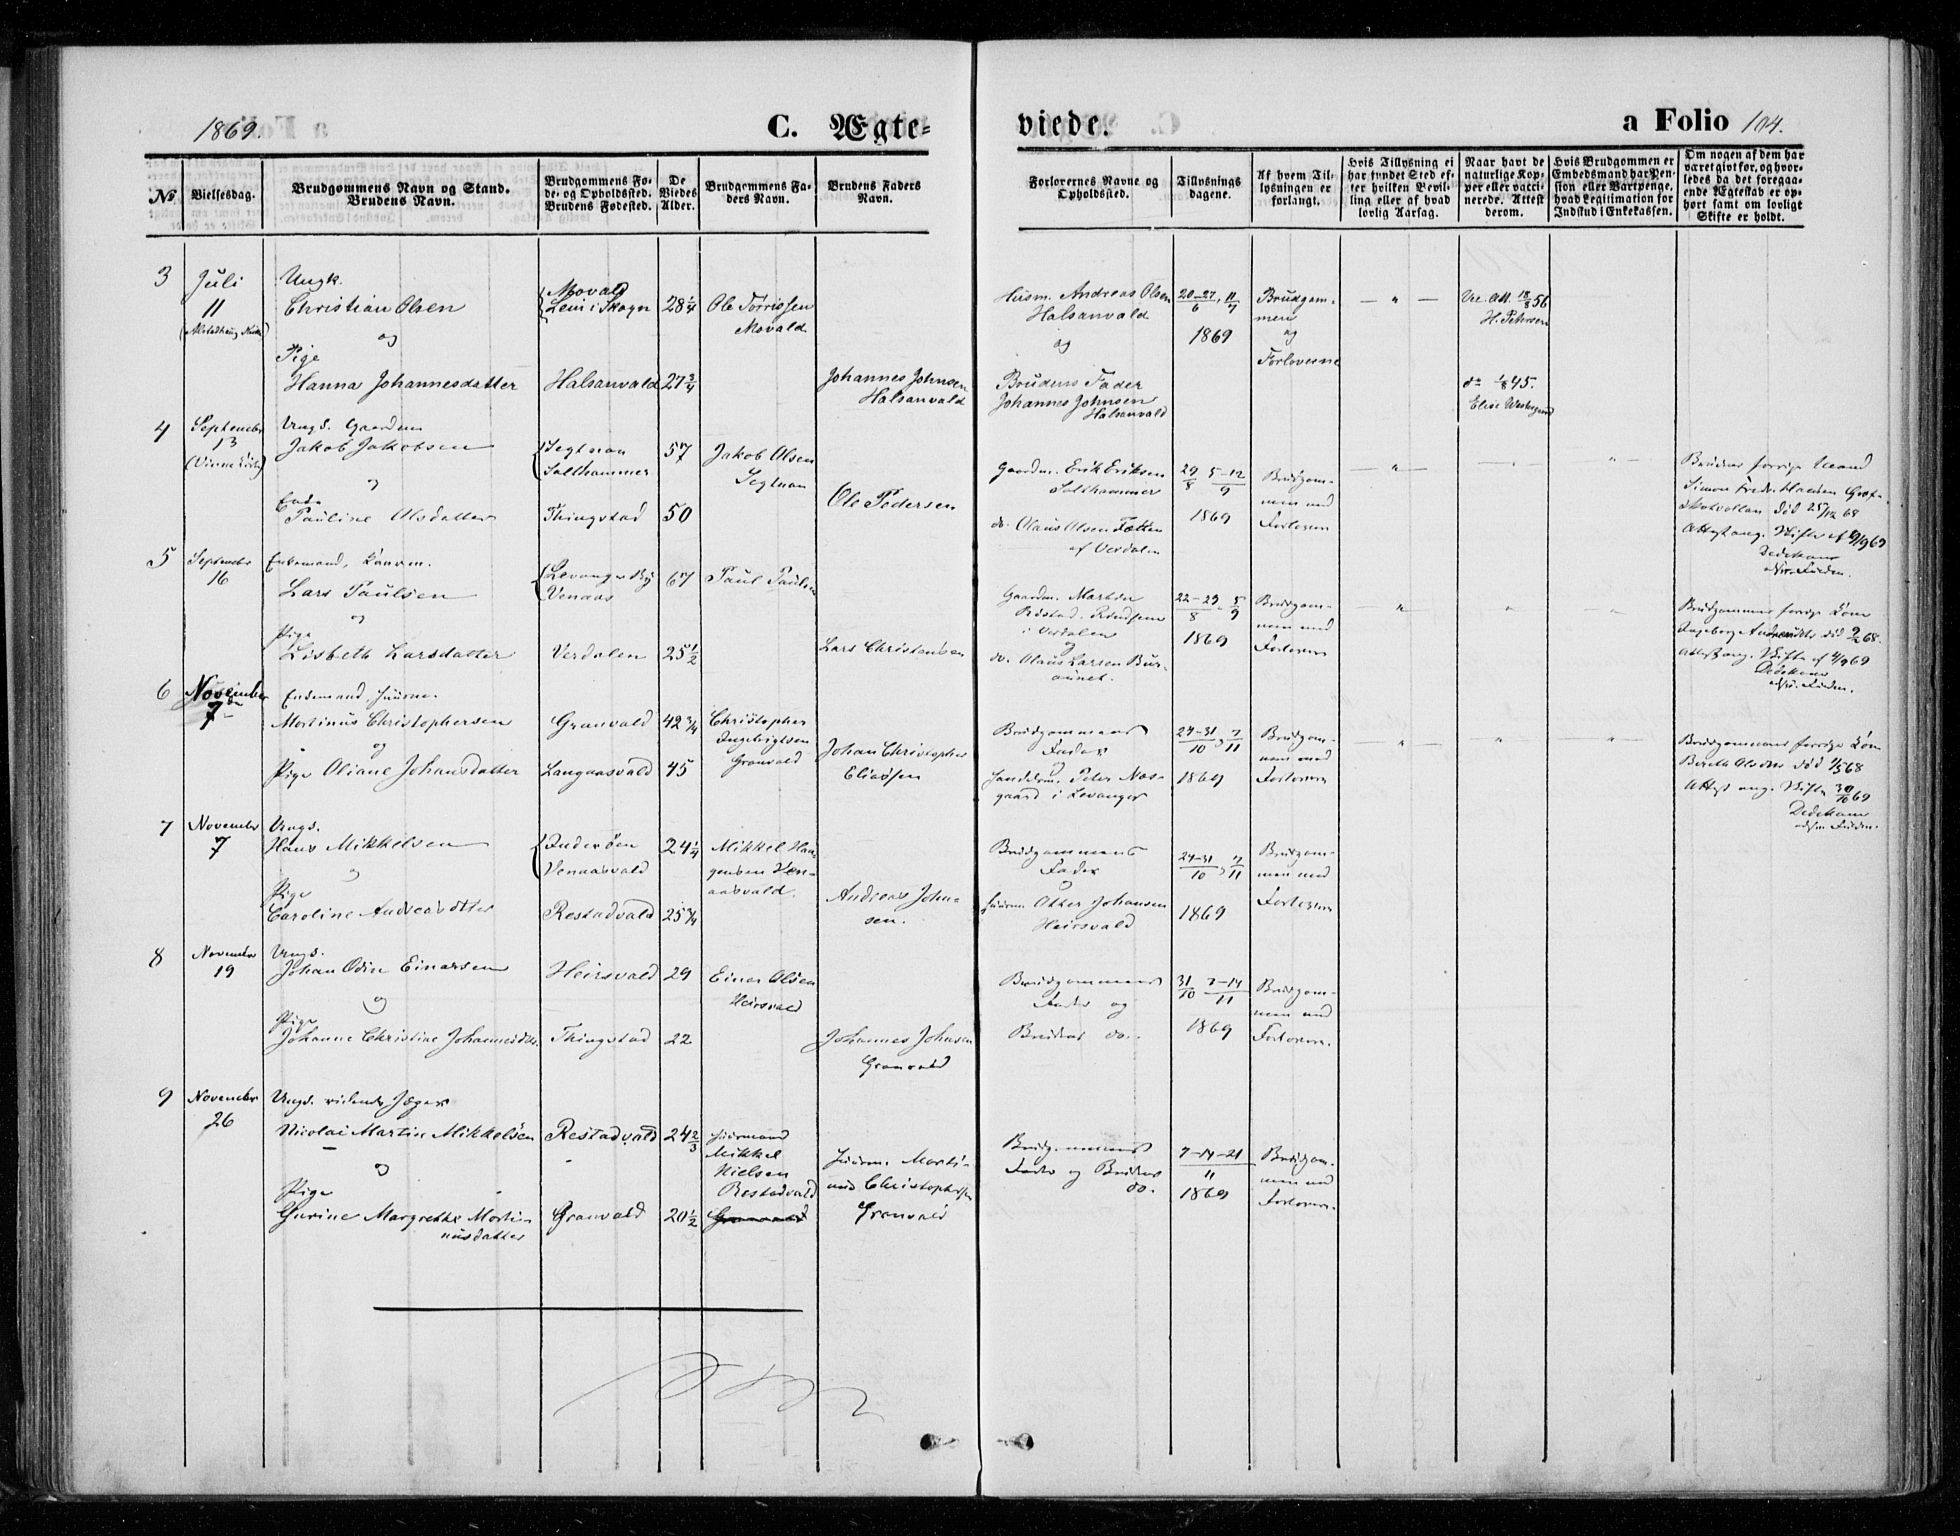 1869.
C. Ægte-
viede.
a Folio 104.
No
Vielsesdag.
Brudgommens Navn og Stand.
Brudens Navn.
Brudgommens Fø-
de- og Opholdssted.
Brudens Fødested.
De
Viedes
Alder.
Brudgommens Fa-
ders Navn.
Brudens Faders
Navn.
Forlovernes Navne og
Opholdssted.
Tillysnings
dagene.
Af hvem Til-
lysningen er
forlangt.
Hvis Tillysning ei
har fundet Sted ef-
ter hvilken Bevil-
ling eller af hvad
lovlig Aarsag.
Naar havt de
naturlige Kop-
per eller vacci-
nerede. Attest
derom.
Hvis Brudgommen er
Embedsmand har Pen-
sion eller Vartpenge,
hvad Legitimation for
Indskud i Enkekassen.
Om nogen af dem har
været givt før, og hvor-
ledes da det foregaa-
ende Ægteskab er op-
hørt samt om lovligt
Skifte er holdt.
3
Juli
11
Ungk.
Christian Olsen
og
Pige
Hanna Johannesdatter
Movald
Lein i Skogn
Halsanvald
28 1/4
27 3/4
Ole Torrissen
Movald
Johannes Johnsen
Halsanvald
Husm. Andreas Olsen
Halsanvald
og
Brudens Fader
Johannes Johnsen
Halsanvald
20-27/6 11/7
1869
Brudgom-
men
og
Forloverne
— " —
Vac. Att. 18/8 56
H. Petersen
do 1/8 45.
4
September
13
Ungk. Gaardm
Jakob Jakobsen
og
Enke
Pauline Olsdatter
Segtnan
Salthammer
Thingstad
57
50
Jakob Olsen
Segtnan
Ole Pedersen
Gaardm. Erik Eriksen
Salthammer
do. Olaus Olsen Fætten
af Verdalen
29/8 5-12/9
1869
Brudgom-
men med
Forlovere
— " —
"
"
Brudens forrige Mand
død 25/12 68
5
September
16
Enkemand,
Lars Paulsen
og
Pige
Lisbeth Larsdatter
Levanger By
Venaas
Verdalen
67
25 1/2
Paul Paulsen
Lars Christensen
Gaardm.
i Verdalen
og
do. Olaus Larsen
22-29/8 5/9
1869
Brudgom-
men med
Forlovere
— " —
"
"
Brudgommens forrige Kone
6
November
7
Enkemand, Huusm.
Mortinus Christophersen
og
Pige Oliane Johansdatter
Granvald
Langaasvald
42 3/4
45
Christopher
Ingebrigtsen
Granvald
Johan Christopher
Eliassen
Brudgommens
Fader
og
Handelsm. Peter Nos-
gaard i Levanger
24-31/10, 7/11
1869
Brudgom-
men med
Forlovere
— " —
"
"
Brudgommens forrige Kone
Bereth Olsdtr død
7
November
7
Ungk.
Hans Mikkelsen
og
Pige
Caroline Andreasdtter
Inderøen
Venaasvald
Restadvald
24 1/4
25 3/4
Mikkel Haa-
gensen Ven-
aasvald.
Andreas John-
sen.
Brudgommens
Fader
og
Huusm. Otter Johansen
Heirsvald
24-31/10, 7/11
1869
Brudgom-
men med
Forlovere
8
November
19
Ungk.
Johan Odin Einarsen
og
Pige
Johanne Christine Johannesdtr.
Heirsvald
Thingstad
29
22
Einar Olsen
Heirsvald
Johannes Johnsen
Granvald
Brudgommens
Fader og
Brudens do.
31/10 7-14/11
1869
Brudgom-
men med
Forlovere.
9
November
26
Ungk. ridende Jæger
Nicolai Martin Mikkelsen
og
Pige
Gurine Margrethe Morti-
nusdatter
Restadvald
Granvald
24 2/3
20 1/2
Huusmand
Mikkel
Nielsen
Restadvald
Huusm. Morti-
nus Christophersen
Granvald
Brudgommens
Fader og Brudens
do.
7-14-21/11
1869
Brudgom-
men med
Forlovere.